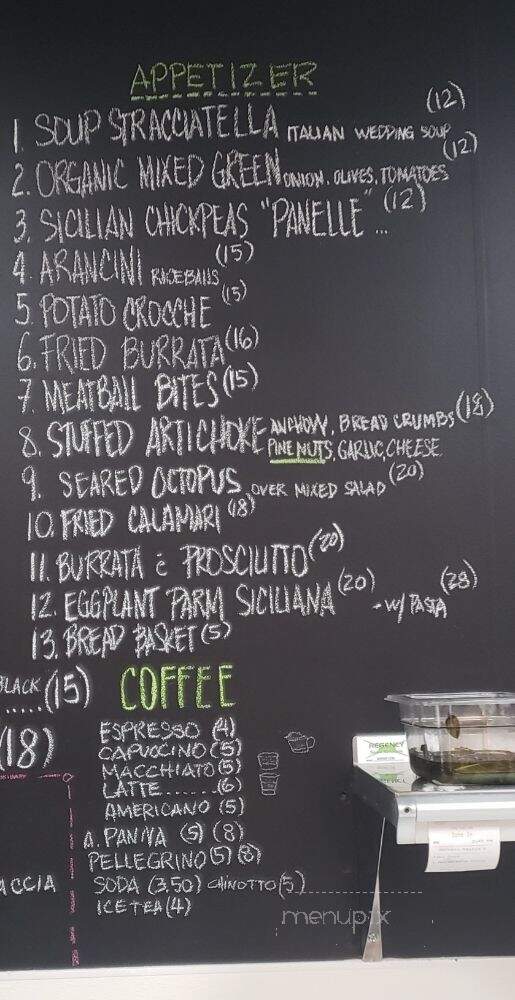 APPETIZER
1. SOUP STRACCIATELLA ITALIAN WEDDING SOUP (12)
2. ORGANIC MIXED GREEN ONION, OLIVES, TOMATOES (12)
3. SICILIAN CHICKPEAS "PANELLE" ... (12)
4. ARANCINI RICEBALLS (15)
5. POTATO CROCCHE (15)
6. FRIED BURRATA (16)
7. MEATBALL BITES (15)
8. STUFFED ARTICHOKE ANCHOVY, BREAD CRUMBS (18)
PINE NUTS, GARLIC, CHEESE
9. SEARED OCTOPUS OVER MIXED SALAD (20)
10. FRIED CALAMARI (18)
11. BURRATA è PROSCIUTTO (20)
12. EGGPLANT PARM SICILIANA (20) - W/ PASTA (28)
13. BREAD BASKET (5)
BLACK (15)
COFFEE
(18)
ESPRESSO (4)
CAPUCCINO (5)
MACCHIATO (5)
LATTE....... (6)
AMERICANO (5)
A. PANNA (5) (8)
PELLEGRINO (5) (8)
ACCIA
SODA (3.50) CHINOTTO (5)
ICE TEA (4)
REGENCY
menupix